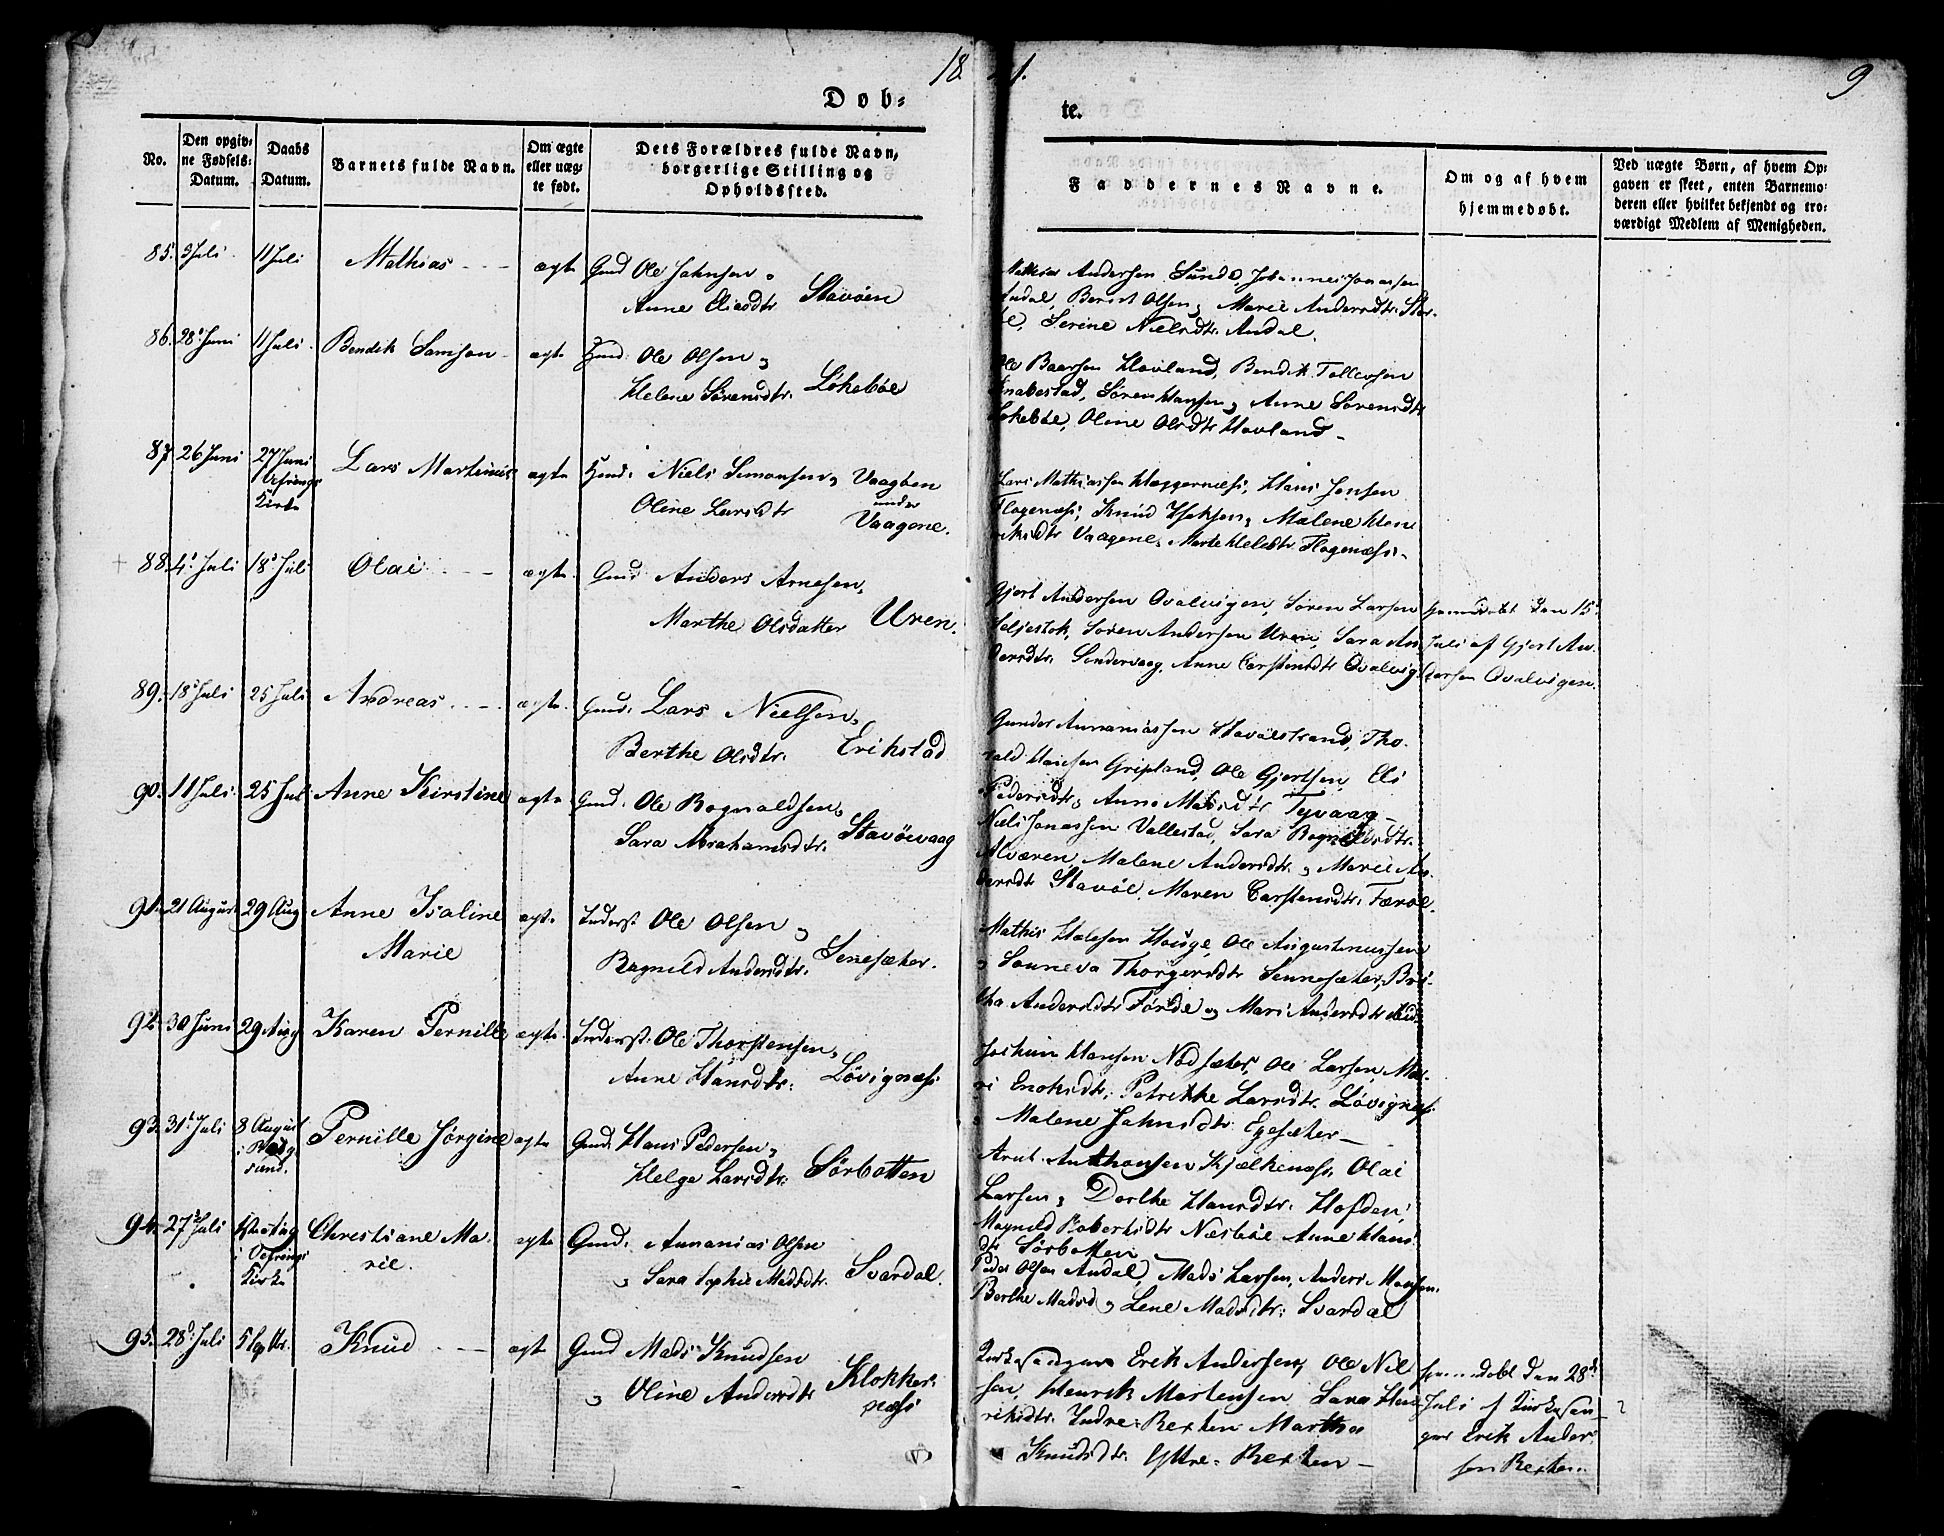 18 1.
9
Døb-
te.
No.
Den opgiv-
ne Fødsels-
Datum.
Daabs
Datum.
Barnets fulde Navn.
Om ægte
eller uæg-
te født.
Dets Forældres fulde Navn,
borgerlige Stilling og
Opholdssted.
Faddernes Navne.
Om og af hvem
hjemmedøbt.
Ved uægte Børn, af hvem Op-
gaven er skeet, enten Barnemo-
deren eller hvilket bekjendt og tro-
værdigt Medlem af Menigheden.
85. 9 Juli 11 Juli Mathias ægte Gmd Ole Johnsen
Anne Eliasdtr Stavöen
Mathias Andersen Sunde, Johannes Jonassen
Andal, Bernt Olsen, Marie Andersdtr.
Serine Nielsdtr. Andal.
86. 28 Juni 11 Juli Bendik Samson ægte Hmd: Ole Olsen
Helene Sörensdtr. Lökeböe
Ole Baarsen Hovland, Bendik Tollevsen
Knabestad, Sören Hansen, Anne Sörensdtr
Lökeböe, Oline Olsdtr Hovland
87 26 Juni 27 Juni Lars Martinus ægte Hmd: Niels Simonsen Vaagben
Kirke Oline Larsdtr under
Vaagene.
Lars Mathiassen Hæggernæss, Hans Jensen
Flogenæss, Knud Isaksen, Malene Hen
riksdtr Vaagene, Flogenæss
88. 4 Juli 18 Juli Olai ægte Gmd Anders Arnesen,
Marthe Olsdatter Uren.
Gjert Andersen Qvalvigen, Sören Larsen
Seljestok, Sören Andersen Uren, Sara An
dersdtr. Söndervaag, Anne Carstensdtr Qvalvig
hjemmedøbt den 15
Juli af Gjert An
dersen Qvalvigen.
89. 18 Juli 25 Juli Andreas ægte Gmd: Lars Nielsen,
Berthe Olsdtr. Erikstad
Gunder Annaniassen Stavöstrand, Tho.
rald Hansen Gripland, Ole Gjertsen, Eli
Pedersdtr, Anne Madsdtr Tyvaag
90. 11 Juli 25 Juli Anne Kirstine ægte Gmd: Ole Rognaldsen,
Sara Abrahamsdtr. Stavöevaag
Niels Jonassen Vallestad, Sara Rognaldsdtr.
Alværen, Malene Andersdtr, Marie An
dersdtr Stavöe, Maren Carstensdtr. Færöe.
91. 21 August 29 Aug Anne Isaline ægte Inderst Ole Olsen
Marie Ragnild Andersdtr. Senesæter.
Mathis Halesen Houge, Ole Augustinussen
Sonneva Thorgersdtr Sennesæter, Bri
tha Andersdtr Förde, Mari Andersdtr
92. 30 Juni 29 Aug Karen Pernille ægte Inderst: Ole Thorstensen,
Anne Hansdtr: Lövignæss
Jochim Hansen Nödsæter, Ole Larsen, Ma-
ri Enoksdtr; Petrikke Larsdtr. Lövignæss
Malene Johnsdtr Egesæter
93. 31 Juli 8 August Pernille Jörgine ægte Gmd: Hans Pedersen,
Helge Larsdtr: Sörbotten
Arnt Anthonsen Kjelkenæss, Olai
Larsen, Dorthe Hansdtr. Hofden,
Magnild Robertsdtr Næsböe, Anne Hans
dtr Sörbotten
94. 27 Juli Christiane Ma- ægte Gmd: Annanias Olsen
Kirke rie. Sara Sophie Madsdtr Svardal.
Peder Olsen Andal, Mads Larsen, Anders Monsen,
Berthe Madsd, Lene Madsdtr: Svardal
95. 28 Juli 5 Septbr. Knud ægte Gmd Mads Knudsen
Oline Andersdtr Klokker-
næss
Kirkesanger Erik Andersen, Ole Niel
sen, Henrik Mortensen, Sara Hen
riksdtr. Indre-Rexten Marthe
Knudsdtr. Yttre-Rexten
hjemmedøbt den 28
Juli af Kirkesan
ger Erik Ander
sen Rexten.